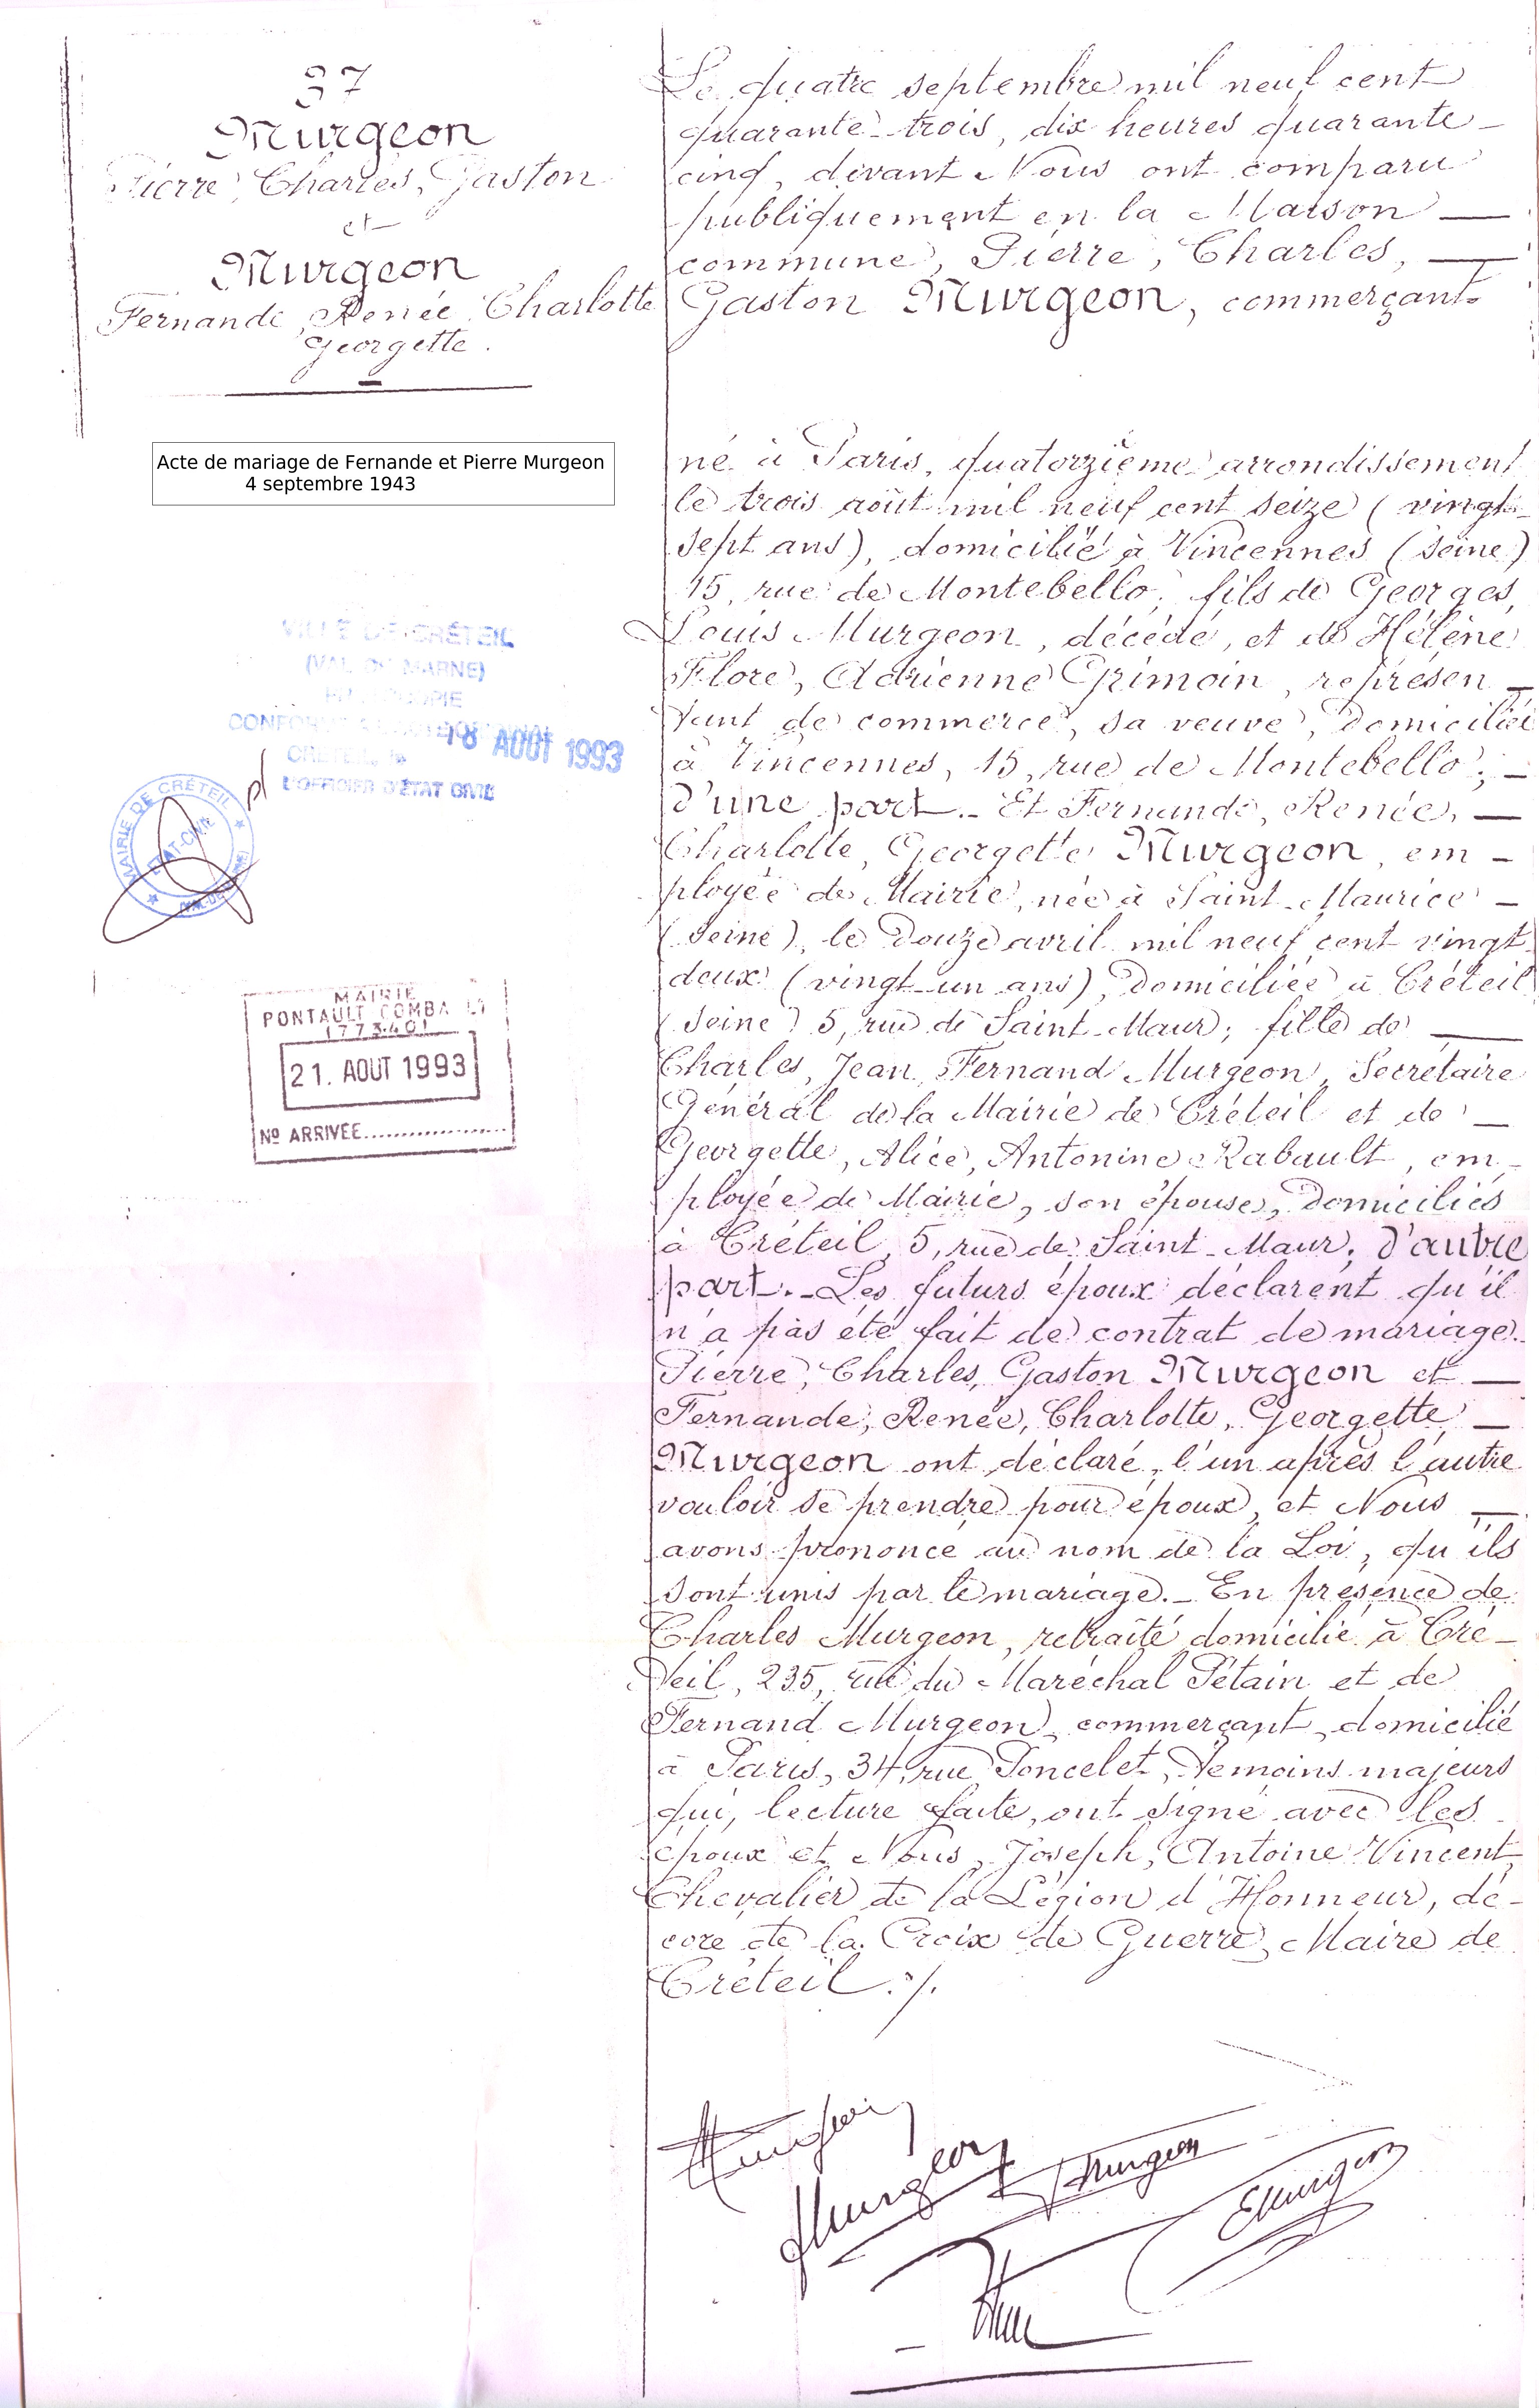 37
Murgeon
Pierre, Charles, Gaston
et
Murgeon
Fernande, Renée, Charlotte
Georgette.
Acte de mariage de Fernande et Pierre Murgeon
4 septembre 1943
VILLE DE CRÉTEIL
(VAL DE MARNE)
PHOTOCOPIE
CONFORME
CRÉTEIL, le
18 AOUT 1993
L'OFFICIER D'ÉTAT CIVIL
MAIRIE DE CRÉTEIL
ÉTAT-CIVIL
MAIRIE
PONTAULT COMBA LT
(77340)
21. AOUT 1993
Nº ARRIVÉE
Le quatre septembre mil neuf cent
quarante-trois, dix heures quarante-
cinq, devant Nous ont comparu
publiquement en la Maison —
commune, Pierre, Charles, —
Gaston Murgeon, commerçant
né à Paris, quatorzième arrondissement
le trois août mil neuf cent seize (vingt-
sept ans), domicilié à Vincennes (Seine)
15, rue de Montebello; fils de Georges,
Louis Murgeon, décédé, et de Hélène
Flore, Adrienne Grimoin, représen-
tant de commerce, sa veuve, domiciliée
à Vincennes, 15, rue de Montebello; —
d'une part.- Et Fernande, Renée, —
Charlotte, Georgette Murgeon, em-
ployée de Mairie, née à Saint-Maurice —
(Seine), le douze avril mil neuf cent vingt-
deux (vingt-un ans), domiciliée à Créteil
(Seine) 5, rue de Saint-Maur; fille de —
Charles, Jean, Fernand Murgeon, Secrétaire
Général de la Mairie de Créteil et de —
Georgette, Alice, Antonine Rabault, em-
ployée de Mairie, son épouse, domiciliés
à Créteil, 5, rue de Saint-Maur; d'autre
part.- Les futurs époux déclarent qu'il
n'a pas été fait de contrat de mariage.
Pierre, Charles, Gaston Murgeon et —
Fernande, Renée, Charlotte, Georgette —
Murgeon ont déclaré, l'un après l'autre
vouloir se prendre pour époux, et Nous —
avons prononcé au nom de la Loi, qu'ils
sont unis par le mariage.- En présence de
Charles Murgeon, retraité domicilié à Cré-
teil, 235, rue du Maréchal Pétain et de
Fernand Murgeon, commerçant, domicilié
à Paris, 34, rue Poncelet, témoins majeurs
qui, lecture faite, ont signé avec les
époux et Nous, Joseph, Antoine Vincent,
Chevalier de la Légion d'Honneur, dé-
coré de la Croix de Guerre, Maire de
Créteil./.
Murgeon
Murgeon
Murgeon
Murgeon